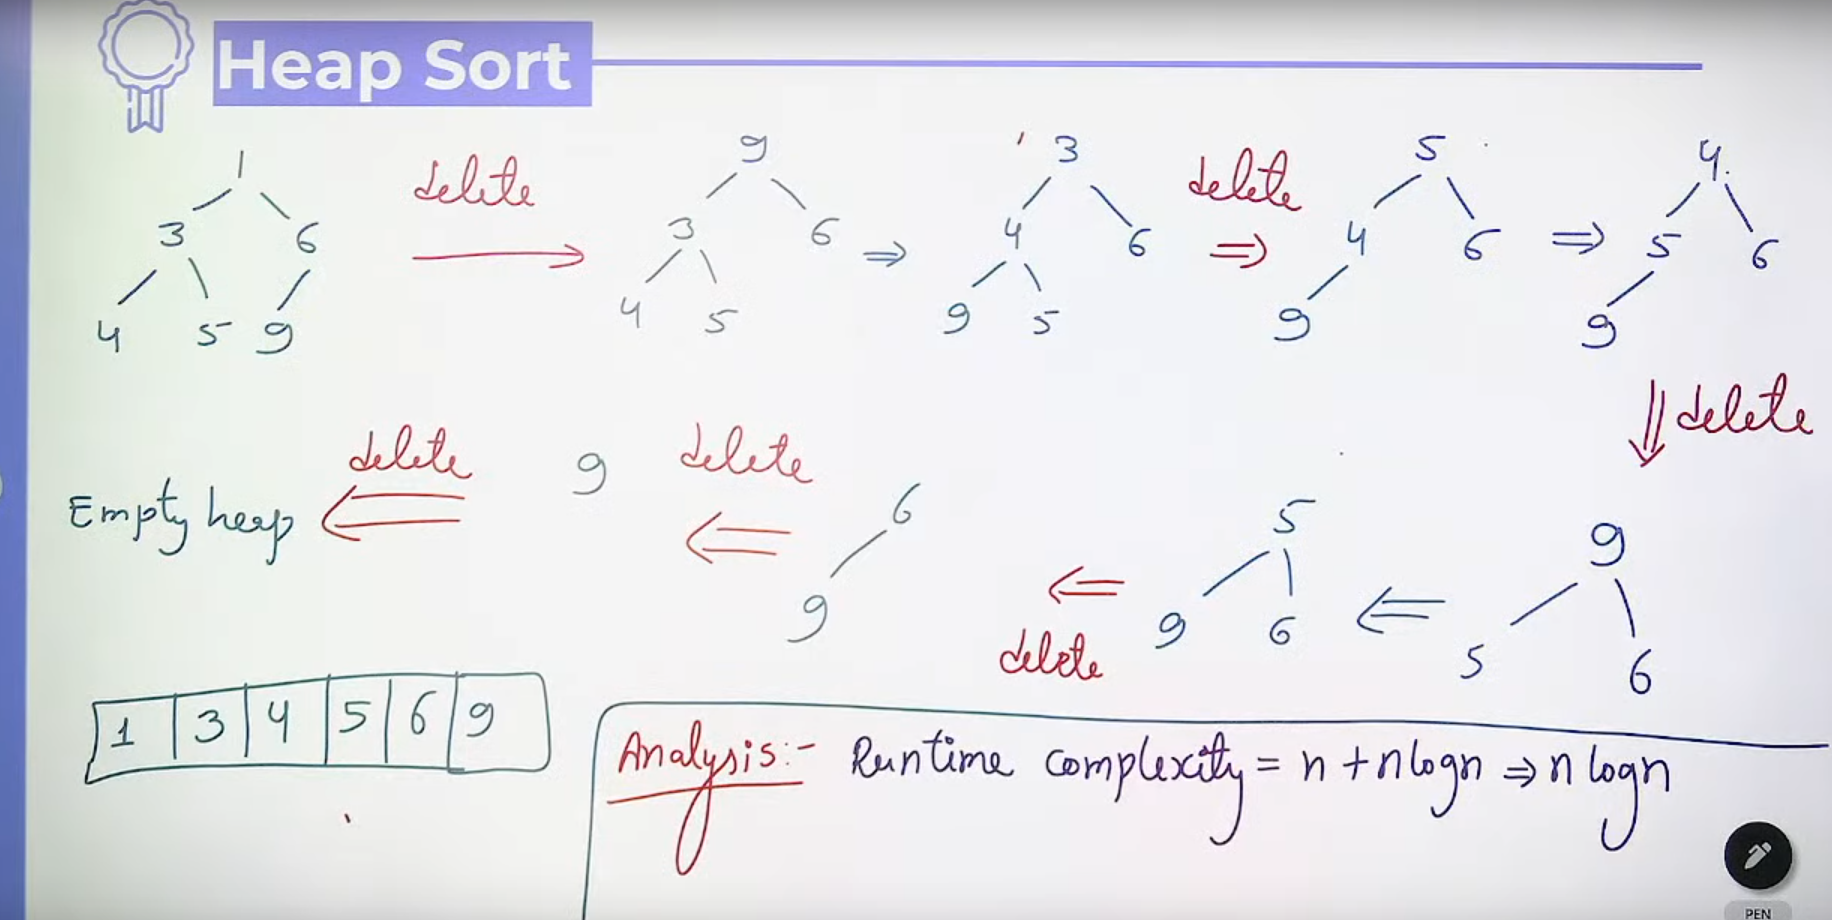 Heap Sort
1
3 6
4 5 9
delete
9
3 6
4 5
⇒
3
4 6
9 5
delete
⇒
5
4 6
9
⇒
4
5 6
9
delete
9
5 6
⇐
5
9 6
⇐
delete
6
9
delete
⇐
9
delete
⇐
Empty heap
1 3 4 5 6 9
Analysis:- Runtime complexity = n + n log n ⇒ n log n
PEN